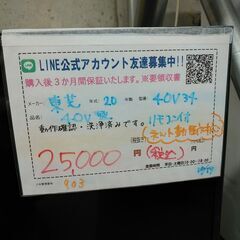 LINE公式アカウント友達募集中!!
購入後3か月間保証いたします。※要領収書
メーカー 東芝 年式 20 年製 型番 40V34
品名 40V型 リモコン付
動作確認・洗浄済みです。
ネット動画対応
25,000 (税込)
903